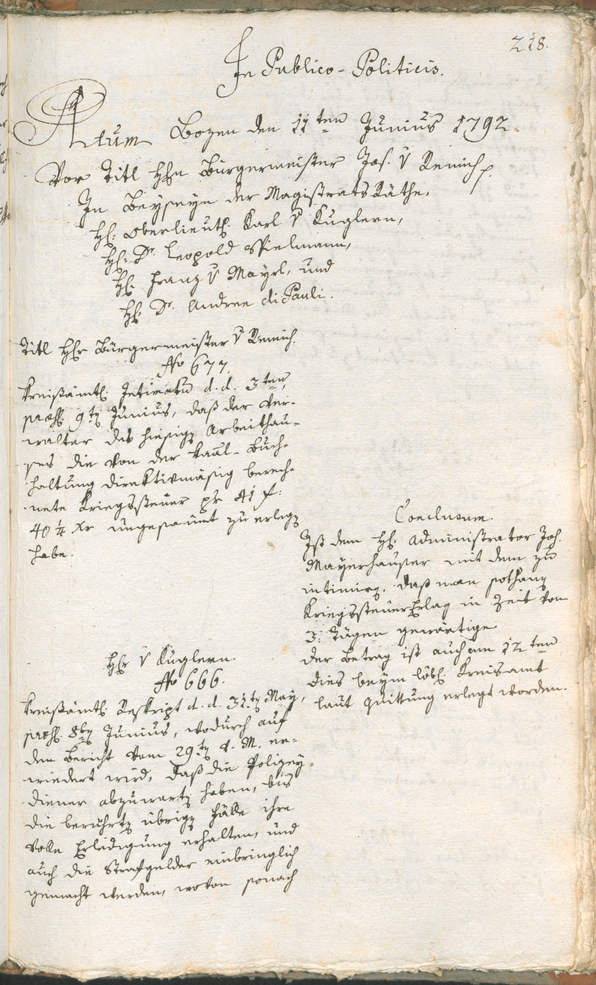 218.
In Publico-Politicis.
Actum Bozen den 11ten Junius 1792.
Vor Titl Hhn Bürgermeister Jos. v Remich
In Beyseyn der Magistrats Räthe,
Hh: Oberlieut Karl v Kuglern,
Hh: Dr. Leopold Spielmann,
Hh. Franz v Mayrl, und
Hh Dr. Andree di Pauli.
Titl Hhr Bürgermeister v Remich.
No 677.
Kreisämtl Intimatum d. d. 3ten,
praes. 9ten Junius, daß der Ver-
walter des hiesigen Arbeithau-
ses die von der Buch-
haltung direktivmäsig berech-
nete Kriegssteuer pr 41 f:
40 1/4 Xr ungesaumt zu erlegen
habe.
Conclusum
Ist dem Hh. Administrator Joh.
Mayrhauser mit dem zu
intimiren, daß man sothanen
Kriegssteuer Erlag in Zeit von
3. Tägen gewärtige.
Der Betrag ist auch am 12ten
dies beym löbl. Kreisamt
laut Quittung erlegt worden.
Hhr v Kuglern.
No 666.
Kreisämtl Reskript d. d. 31ten May,
praes. 8ten Junius, wodurch auf
den Bericht vom 29ten d. M. er-
wiedert wird, daß die Polizey-
diener abzuwarten haben, bis
die berührten übrigen Fälle ihre
volle Erledigung erhalten, und
auch die Strafgelder einbringlich
gemacht werden, wovon sonach